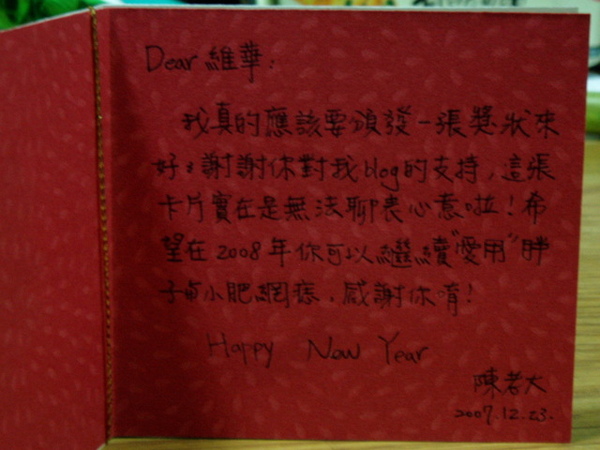 Dear 維華:
我真的應該要頒發一張獎狀來
好好謝謝你對我blog的支持,這張
卡片實在是無法聊表心意啦!希
望在2008年你可以繼續"愛用"胖
子與小肥網痞,感謝你唷!
Happy New Year
陳老大
2007.12.23.